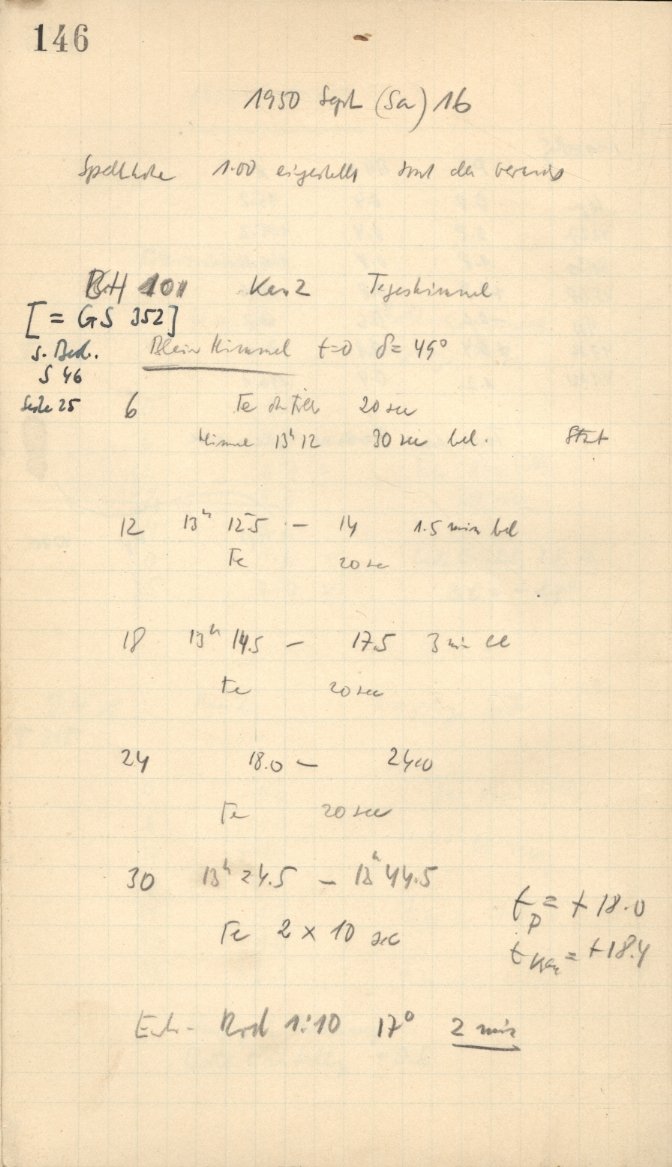 146
1950 Sept (Sa) 16
Spalthöhe 1.00 eingestellt
BH 101 Kas 2 Tageshimmel
[= GS 352]
s. Bed. Blauer Himmel t=0 δ = 45°
S 46
Seite 25
6 Fe 20 sec
Himmel 13h 12 30 sec bel.
12 13h 12.5 – 14 1.5 min bel
Fe 20 sec
18 13h 14.5 – 17.5 3 min
Fe 20 sec
24 18.0 – 24.0
Fe 20 sec
30 13h 24.5 – 13h 44.5
Fe 2 × 10 sec
tp = + 18.0
= +18.4
Rod 1:10 17° 2 min